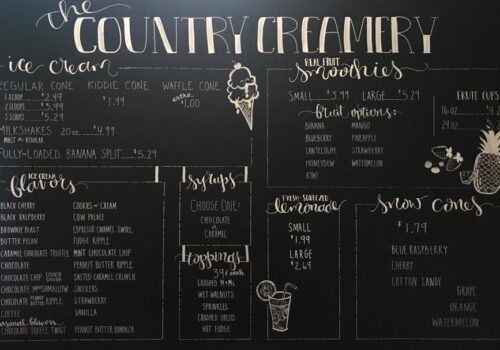 the
COUNTRY CREAMERY
ice cream
REGULAR CONE KIDDIE CONE WAFFLE CONE
1 SCOOP $2.49
2 SCOOPS $3.99
3 SCOOPS $5.29
$1.99
extra
$1.00
MILKSHAKES 20oz $4.99
MALT or REGULAR
FULLY-LOADED BANANA SPLIT $5.29
REAL FRUIT
smoothies
SMALL $3.99 LARGE $5.29
fruit options:
BANANA MANGO
BLUEBERRY PINEAPPLE
CANTELOUPE STRAWBERRY
HONEYDEW WATERMELON
KIWI
FRUIT CUPS
16 oz
24 oz
ICE CREAM
flavors
BLACK CHERRY COOKIES & CREAM
BLACK RASPBERRY COW PALACE
BROWNIE BLAST ESPRESSO CARAMEL SWIRL
BUTTER PECAN FUDGE RIPPLE
CARAMEL CHOCOLATE TRUFFLE MINT CHOCOLATE CHIP
CHOCOLATE PEANUT BUTTER RIPPLE
CHOCOLATE CHIP COOKIE DOUGH SALTED CARAMEL CRUNCH
CHOCOLATE MARSHMALLOW SNICKERS
CHOCOLATE PEANUT BUTTER RIPPLE STRAWBERRY
COFFEE VANILLA
seasonal flavors
CHOCOLATE TOFFEE TWIST PEANUT BUTTER BONANZA
syrups
CHOOSE ONE:
CHOCOLATE
or
CARAMEL
toppings
39¢ each
CRUSHED M+Ms
WET WALNUTS
SPRINKLES
CRUSHED OREOS
HOT FUDGE
FRESH-SQUEEZED
lemonade
SMALL
$1.99
LARGE
$2.69
snow cones
$1.79
BLUE RASPBERRY
CHERRY
COTTON CANDY
GRAPE
ORANGE
WATERMELON